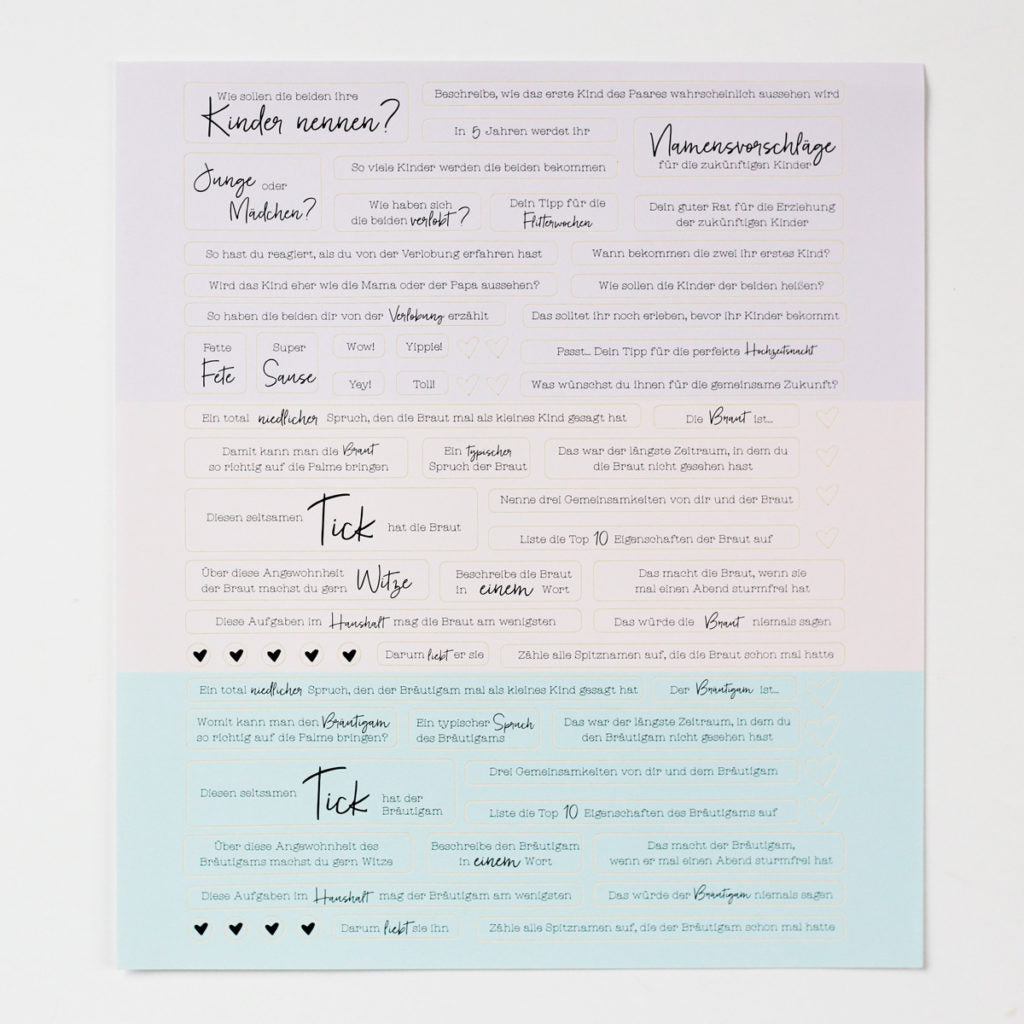 Wie sollen die beiden ihre
Kinder nennen?
Beschreibe, wie das erste Kind des Paares wahrscheinlich aussehen wird
In 5 Jahren werdet ihr
Namensvorschläge
für die zukünftigen Kinder
Junge oder
Mädchen?
So viele Kinder werden die beiden bekommen
Wie haben sich
die beiden verlobt?
Dein Tipp für die
Flitterwochen
Dein guter Rat für die Erziehung
der zukünftigen Kinder
So hast du reagiert, als du von der Verlobung erfahren hast
Wann bekommen die zwei ihr erstes Kind?
Wird das Kind eher wie die Mama oder der Papa aussehen?
Wie sollen die Kinder der beiden heißen?
So haben die beiden dir von der Verlobung erzählt
Das solltet ihr noch erleben, bevor ihr Kinder bekommt
Fette
Fete
Super
Sause
Wow!
Yippie!
Yey!
Toll!
Pssst... Dein Tipp für die perfekte Hochzeitsnacht
Was wünschst du ihnen für die gemeinsame Zukunft?
Ein total niedlicher Spruch, den die Braut mal als kleines Kind gesagt hat
Die Braut ist...
Damit kann man die Braut
so richtig auf die Palme bringen
Ein typischer
Spruch der Braut
Das war der längste Zeitraum, in dem du
die Braut nicht gesehen hast
Diesen seltsamen Tick hat die Braut
Nenne drei Gemeinsamkeiten von dir und der Braut
Liste die Top 10 Eigenschaften der Braut auf
Über diese Angewohnheit
der Braut machst du gern Witze
Beschreibe die Braut
in einem Wort
Das macht die Braut, wenn sie
mal einen Abend sturmfrei hat
Diese Aufgaben im Haushalt mag die Braut am wenigsten
Das würde die Braut niemals sagen
Darum liebt er sie
Zähle alle Spitznamen auf, die die Braut schon mal hatte
Ein total niedlicher Spruch, den der Bräutigam mal als kleines Kind gesagt hat
Der Bräutigam ist...
Womit kann man den Bräutigam
so richtig auf die Palme bringen?
Ein typischer Spruch
des Bräutigams
Das war der längste Zeitraum, in dem du
den Bräutigam nicht gesehen hast
Diesen seltsamen Tick hat der
Bräutigam
Drei Gemeinsamkeiten von dir und dem Bräutigam
Liste die Top 10 Eigenschaften des Bräutigams auf
Über diese Angewohnheit des
Bräutigams machst du gern Witze
Beschreibe den Bräutigam
in einem Wort
Das macht der Bräutigam,
wenn er mal einen Abend sturmfrei hat
Diese Aufgaben im Haushalt mag der Bräutigam am wenigsten
Das würde der Bräutigam niemals sagen
Darum liebt sie ihn
Zähle alle Spitznamen auf, die der Bräutigam schon mal hatte